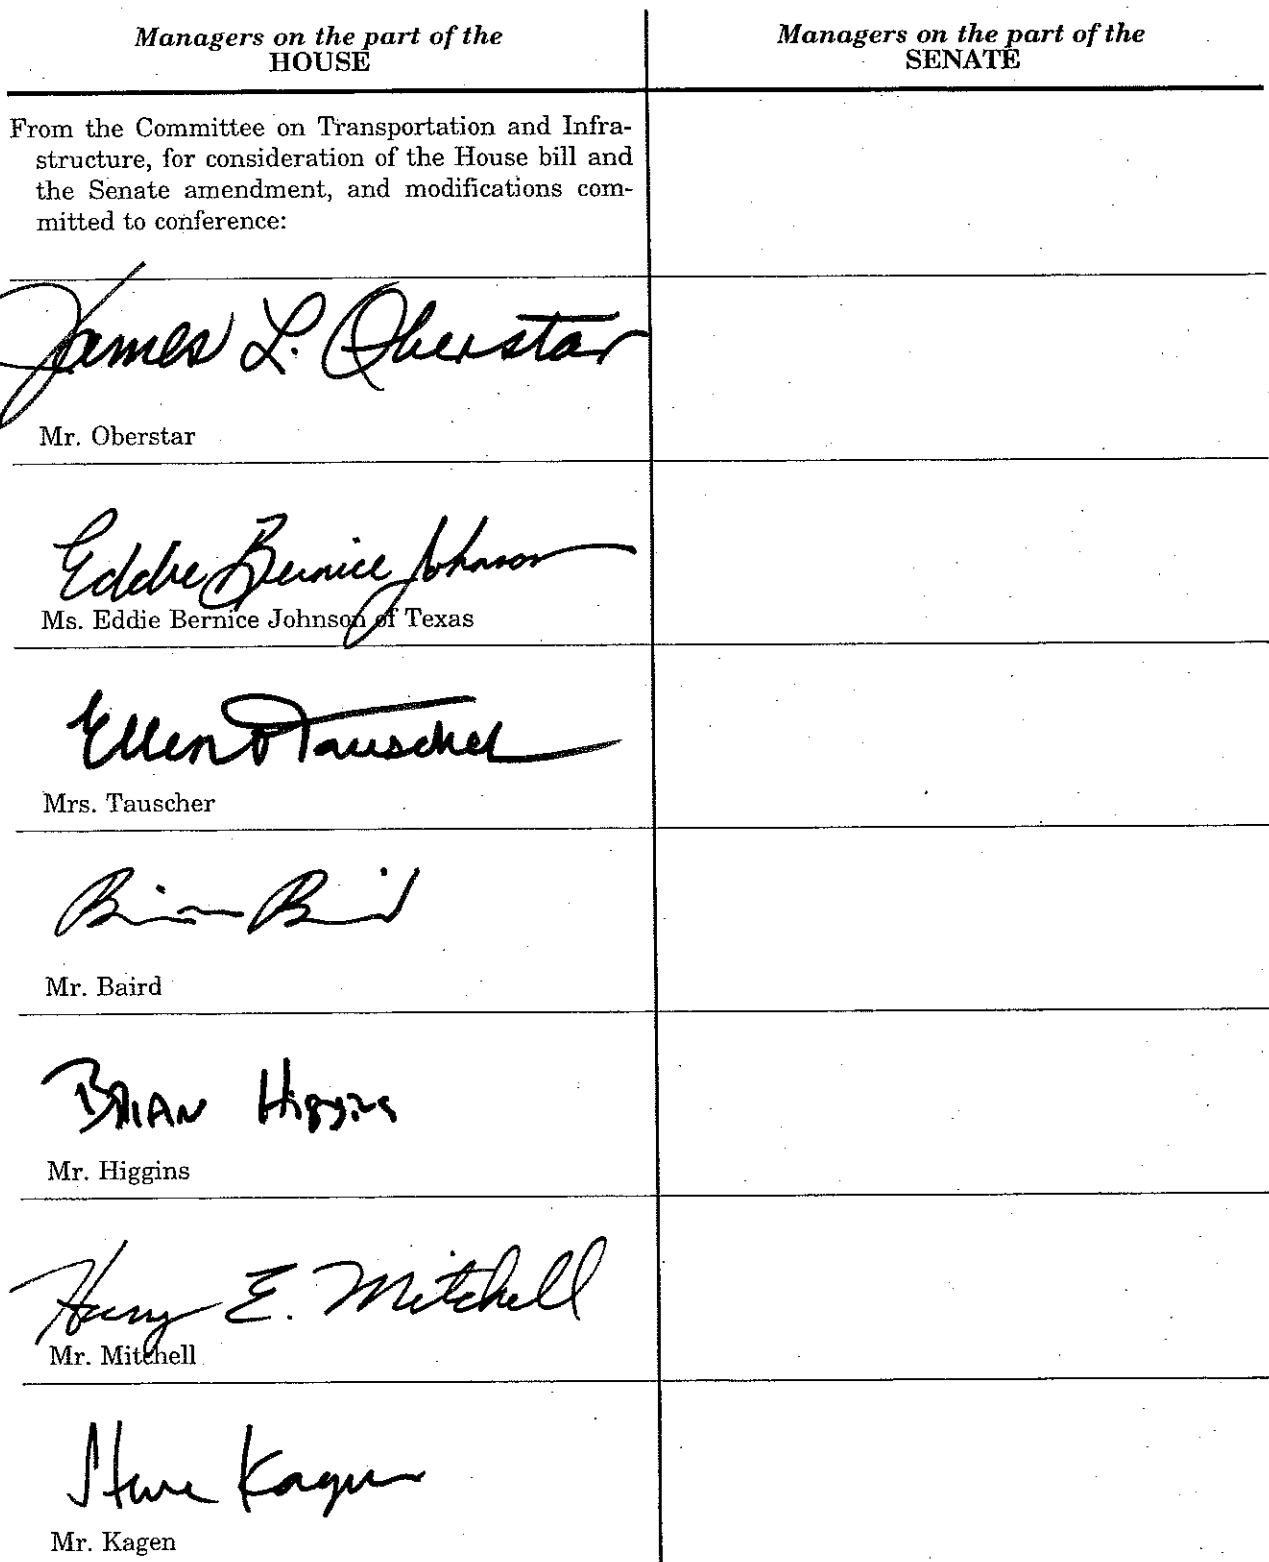 Managers on the part of the
HOUSE
Managers on the part of the
SENATE
From the Committee on Transportation and Infra-
structure, for consideration of the House bill and
the Senate amendment, and modifications com-
mitted to conference:
James L. Oberstar
Mr. Oberstar
Eddie Bernice Johnson
Ms. Eddie Bernice Johnson of Texas
Ellen O Tauscher
Mrs. Tauscher
Brian Baird
Mr. Baird
BRIAN Higgins
Mr. Higgins
Harry E. Mitchell
Mr. Mitchell
Steve Kagen
Mr. Kagen